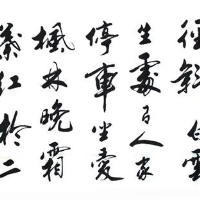 徑斜白雲
生處有人家
停車坐愛
楓林晚霜
葉紅於二